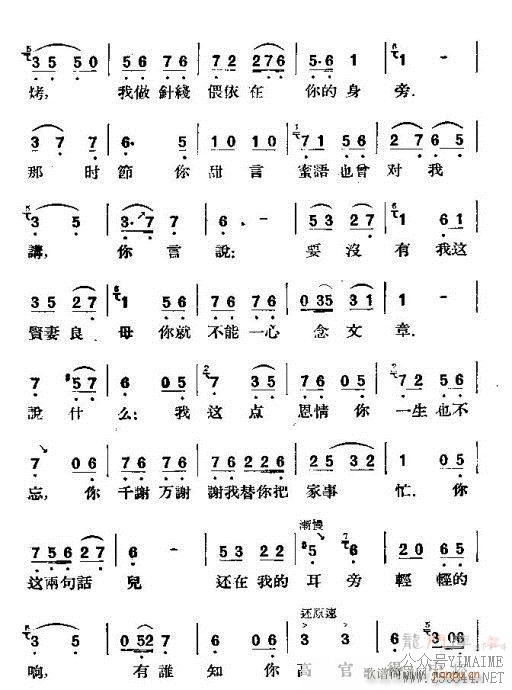 3 5 5 0 5 6 7 6 7 2 2 7 6 5 · 6 1
烤， 我做 針綫 偎依 在 你的 身 旁．
3 7 7 6 · 5 1 0 1 0 7 1 5 6 2 7 6 5
那 时 節 你 甜 言 蜜語 也曾 对 我
3 5 3 · 7 7 6 - 5 3 2 7 1 6 1
講， 你 言 說： 要 沒 有 我这
3 5 2 7 1 5 6 7 6 7 6 0 3 5 3 1 1 -
賢妻 良 母 你就 不能 一心 念 文 章．
7 5 7 6 0 5 7 3 5 7 6 0 5 7 2 5 6
說 什 么： 我 这 点 恩情 你 一生 也不
7 0 6 7 6 7 6 7 6 2 2 6 2 5 3 2 1 0 5
忘， 你 千謝 万謝 謝我替你把 家 事 忙．你
漸慢
7 5 6 2 7 6 - 5 3 2 2 5 7 2 0 6 5
这兩句話 兒 还在 我的 耳 旁 輕 輕的
还原速
3 5 0 5 2 7 6 - 3 3 0 6
响， 有 誰 知 你 高 官
公众号YIMAIME